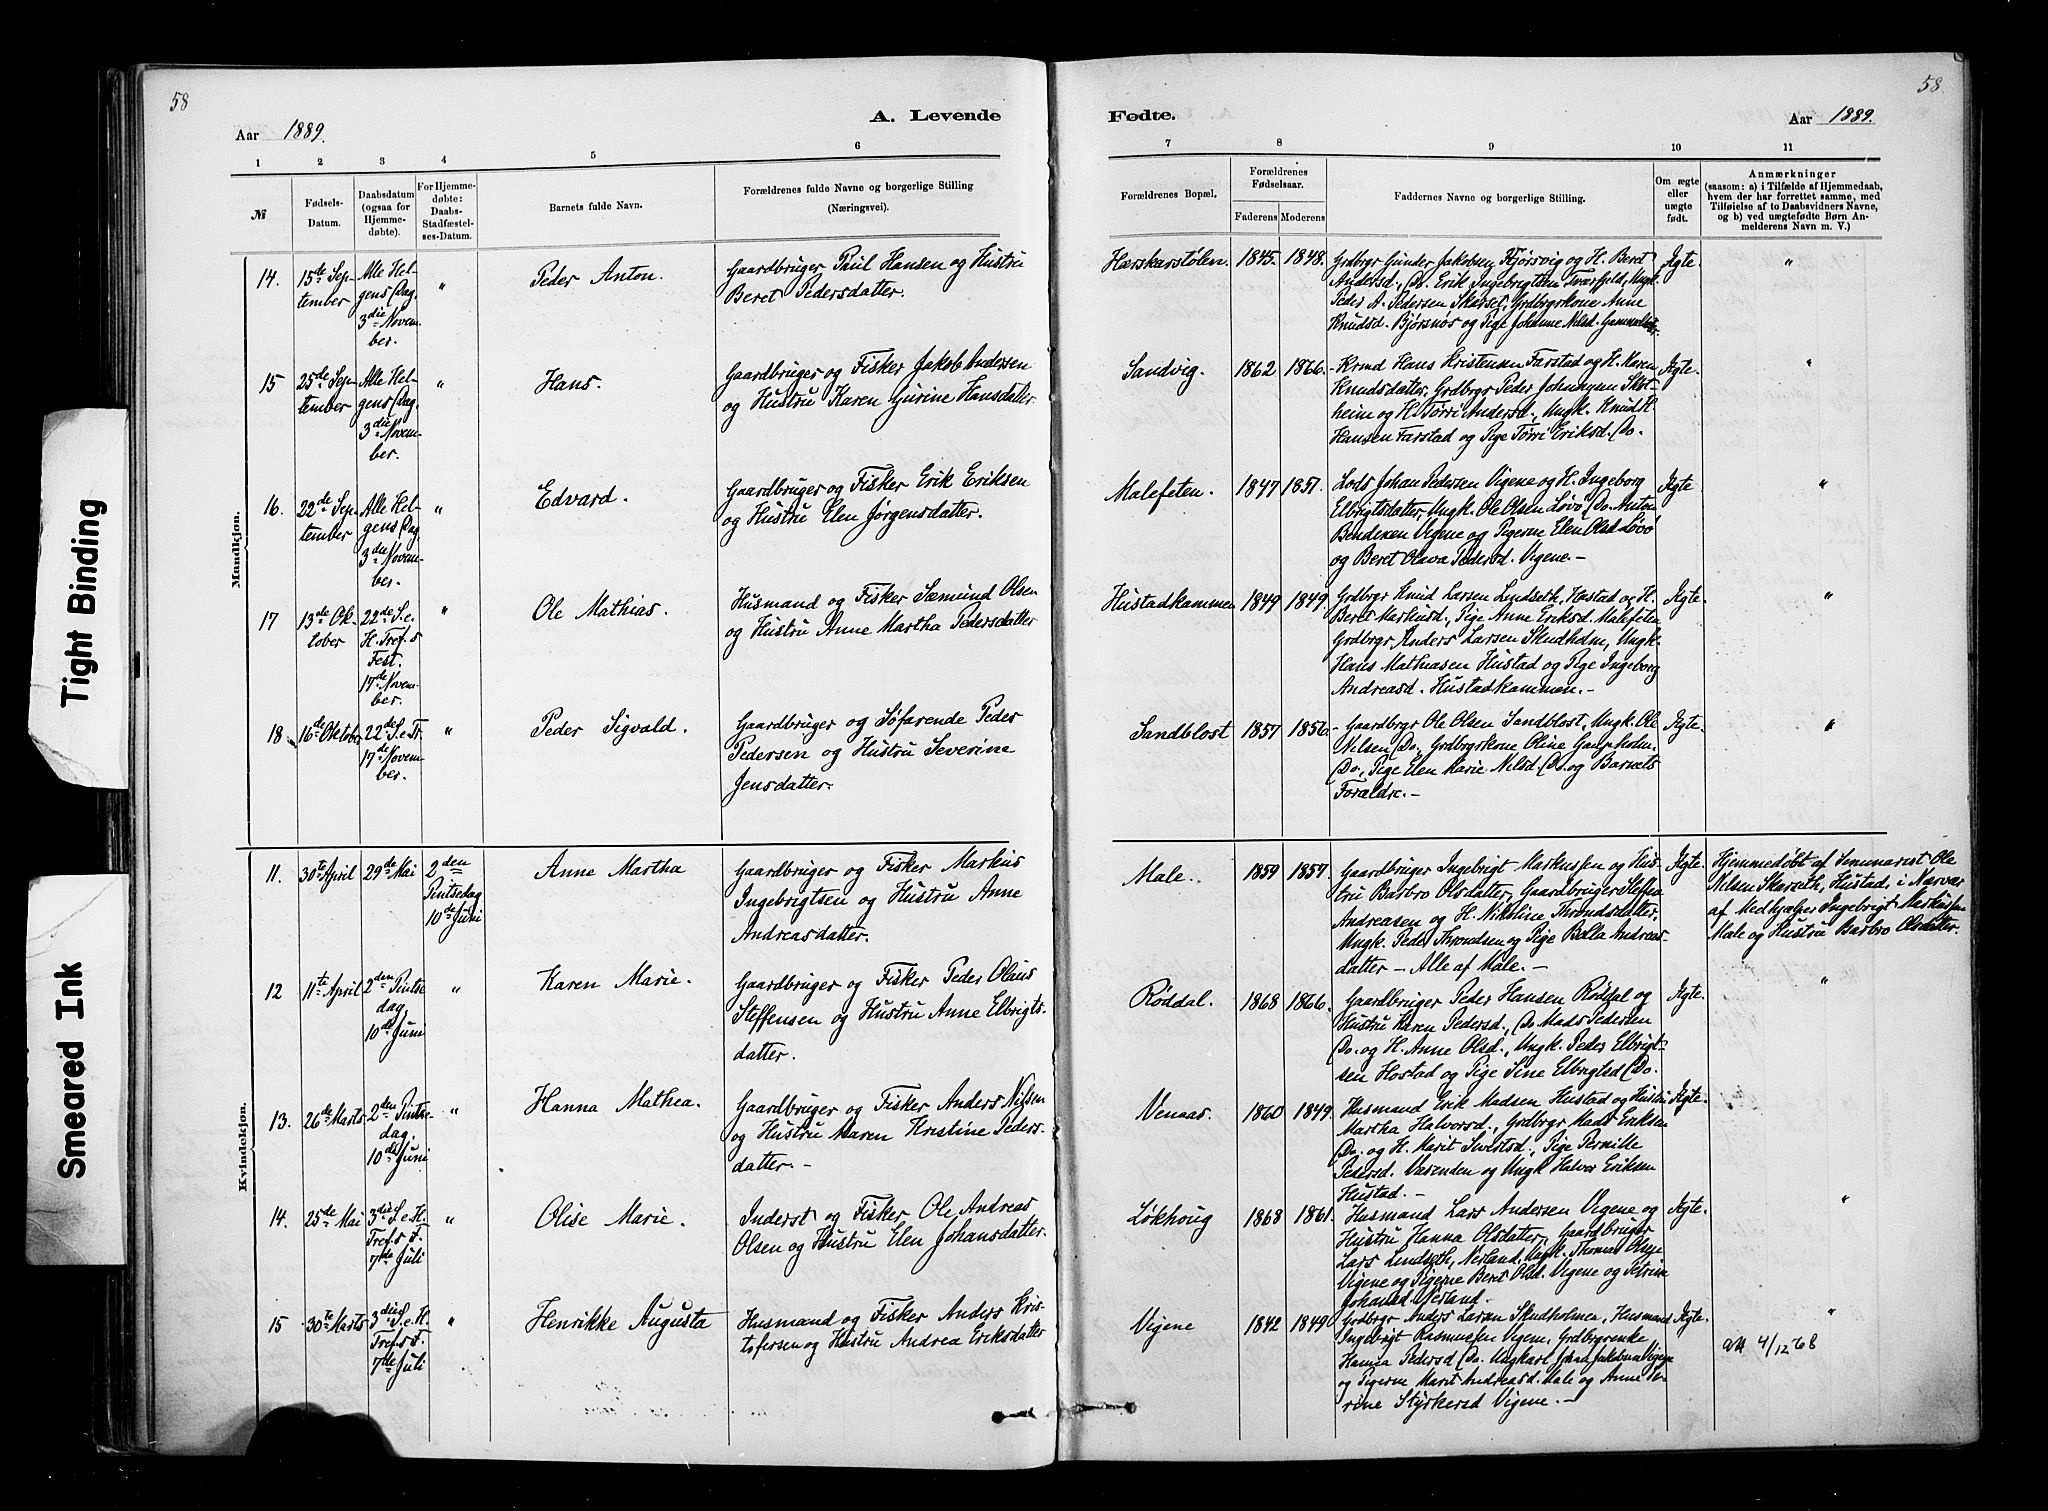 58
Aar 1889.
A. Levende
1 2 3 4 5 6
№
Fødsels-
Datum.
Daabsdatum
(ogsaa for
Hjemme-
døbte).
For Hjemme-
døbte:
Daabs-
Stadfæstel-
ses-Datum.
Barnets fulde Navn.
Forældrenes fulde Navne og borgerlige Stilling
(Næringsvei).
Mandkjøn.
14. 15de Sep-
tember
Alle Hel-
gens Dag.
3die Novem-
ber.
"
Peder Anton.
Gaardbruger Paul Hansen og Hustru
Beret Pedersdatter.
15 25de Sep-
tember
Alle Hel-
gens Dag.
3die Novem-
ber.
"
Hans.
Gaardbruger og Fisker Jakob Andersen
og Hustru Karen Gurine Hansdatter
16. 22de Sep-
tember
Alle Hel-
gens Dag
3die Novem-
ber.
"
Edvard.
Gaardbruger og Fisker Erik Eriksen
og Hustru Elen Jørgensdatter.
17 13de Ok-
tober
22de S. e.
H. Tref.s
Fest.
17de Novem-
ber.
"
Ole Mathias.
Husmand og Fisker Sæmund Olsen
og Hustru Anne Martha Pedersdatter
18 16de Oktober
22de S. e. Tr.
17de Novem-
ber.
"
Peder Sigvald.
Gaardbruger og Søfarende Peder
Pedersen og Hustru Severine
Jensdatter.
Kvindekjøn.
11. 30te April
29de Mai
2den
Pintsedag
10de Juni
Anne Martha
Gaardbruger og Fisker Markus
Ingebrigtsen og Hustru Anne
Andreasdatter.
12 11te April
2den Pintse
dag,
10de Juni
"
Karen Marie.
Gaardbruger og Fisker Peder Olaus
Steffensen og Hustru Anne Elbrigts-
datter.
13. 26de Marts
2den Pintse-
dag.
10de Juni
"
Hanna Mathea.
Gaardbruger og Fisker Anders Nilsen
og Hustru Maren Kristine Peders-
datter.-
14. 25de Mai
3die S. e. H.
Tref.s F.
7de Juli
"
Olise Marie.
Inderst og Fisker Ole Andreas
Olsen og Hustru Elen Johansdatter.
15 30te Marts
3die S. e. H.
Tref.s F
7de Juli
"
Henrikke Augusta
Husmand og Fisker Anders Kris-
tofersen og Hustru Andrea Eriksdatter
58.
Fødte.
Aar 1889.
7 8 9 10 11
Forældrenes Bopæl.
Forældrenes
Fødselsaar.
Faderens Moderens
Faddernes Navne og borgerlige Stilling.
Om ægte
eller
uægte
født.
Anmærkninger
(saasom: a) i Tilfælde af Hjemmedaab,
hvem der har forrettet samme, med
Tilføielse af to Daabsvidners Navne,
og b) ved uægtefødte Børn An-
melderens Navn m. V.)
Hærskarstølen. 1845. 1848.
Grdbrgr Gunder Jakobsen Kjørsvig og H. Beret
Andersd., Do. Erik Ingebrigtsen Tværfeld, Ungk.
Peder A. Pedersen Skarset, Grdbrgrkone Anne
Knudsd. Bjørsnøs og Pige Johanne Nilsd.
Ægte. "
Sandvig. 1862 1866.
Krmd Hans Kristensen Farstad og H. Maren
Knudsdatter, Grdbrgr Peder Johnnysen
heim og H. Tørri Andersd., Ungk. Knud H.
Hansen Farstad og Pige Tørri Eriksd. Do.
Ægte. "
Malefeten. 1847 1851.
Lods Johan Pedersen Vigene og H. Ingeborg
Elbrigtsdatter, Ungk. Ole Olsen Løvø, Do. Anton
Bendixen Vigene og Pigerne Elen Olsd. Løvø
og Beret Olava Pedersd. Vigene.-
Ægte "
Hustadkammen 1849 1849.
Grdbrgr Knud Larsen Lindseth, Hostad og H.
Beret Markusd., Pige Anne Eriksd. Malefeten
Grdbrgr Anders Larsen Skudholm, Ungk.
Hans Mathiasen Hustad og Pige Ingeborg
Andreasd. Hustadkammen.-
Ægte. "
Sandblost 1857 1856.
Gaardbrgr Ole Olsen Sandblost, Ungk. Ole
Nilsen Do., Grdbrgrkone Oline Gaasholm.
Do., Pige Elen Marie Nilsd. Do. og Barnets
Forældre.-
Ægte. "
Male. 1859 1857.
Gaardbruger Ingebrigt Markussen og Hus-
tru Barbro Olsdatter, Gaardbruger Steffen
Andreasen og H. Nikoline Throndsdatter,
Ungk. Peder Throndsen og Pige Bolla Andreas-
datter - Alle af Male.-
Ægte.
Hjemmedøbt af Seminarist Ole
Nilsen Skarseth, Hustad, i Nærvær
af Medhjælper Ingebrigt Markussen
Male og Hustru Barbro Olsdatter.
Røddal. 1868 1866.
Gaardbruger Peder Hansen Røddal og
Hustru Karen Pedersd., Do. Mads Pedersen
Do. og H. Anne Olsd., Ungk. Peder Elbrigt-
sen Hostad og Pige Sine Elbrigtsd Do.
Ægte. "
Venaas. 1860 1849.
Husmand Erik Madsen Hustad og Hustru
Martha Halvorsd., Grdbrgr Mads Eriksen
Do. og H. Marit Sivertsd., Pige Pernille
Pedersd. Varenden og Ungk. Halvor Eriksen
Hustad.-
Ægte.
Løkhoug 1868 1861.
Husmand Lars Andersen Vigene og
Hustru Hanna Olsdatter, Gaardbruger
Lars Lindseth, Nerland, Ungk. Thomas Olsen
Vigene og Pigerne Beret Olsd. Vigene og Petrine
Johansd Nerland.
Ægte. "
Vigene 1842 1849
Grdbrgr Anders Larsen Skudholmen, Husmand
Ingebrigt Rasmussen Vigene, Grdbrgrenke
Hanna Pedersd Do. Ungkarl Johan Jakobsen Vigene
og Pigerne Marit Andreasd. Male og Anne Se-
rine Styrkersd Vigene.-
Ægte. "
4/12 68
Tight Binding
Smeared Ink